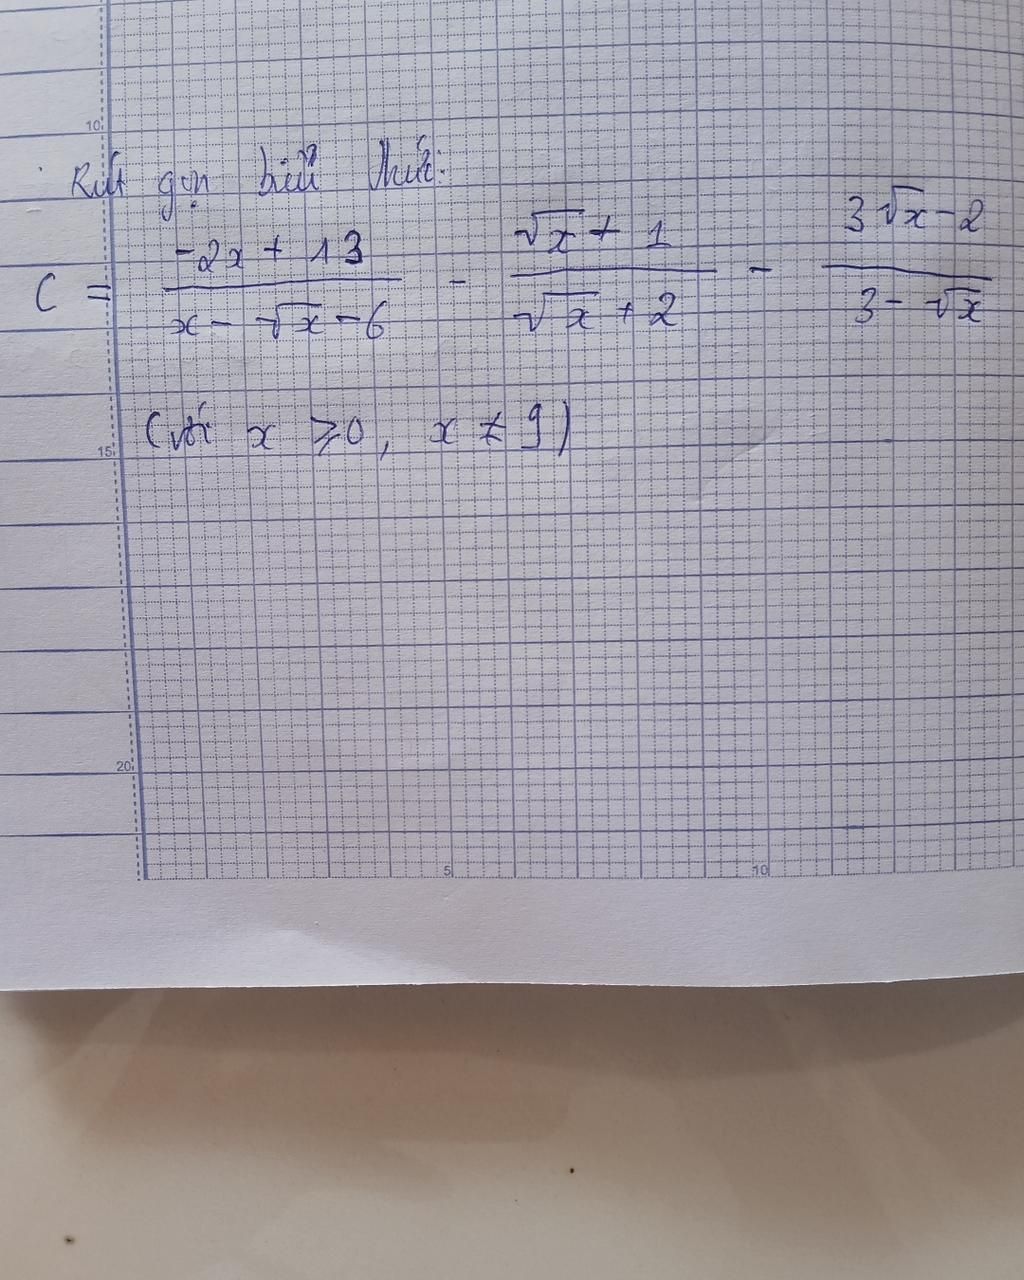 10
Rút gọn biểu thức:
C = \frac{-2x + 13}{x - \sqrt{x} - 6} - \frac{\sqrt{x} + 1}{\sqrt{x} + 2} - \frac{3\sqrt{x} - 2}{3 - \sqrt{x}}
(với x ⩾ 0, x ≠ 9)
15
20
5 10